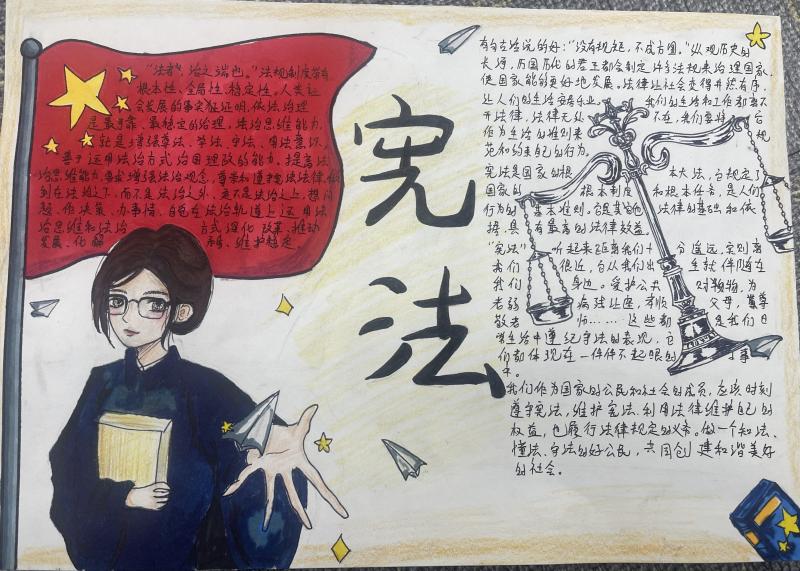 "法者,治之端也。"法规制度带有
根本性、全局性、稳定性。人类社
会发展的事实证明,依法治理
是最可靠、最稳定的治理,法治思维能力,
就是增强尊法、学法、守法、用法意识,
善于运用法治方式治国理政的能力。提高法
治思维能力,要求增强法治观念,尊崇和遵守宪法法律,做
到在法治之下,而不是法治之外、更不是法治之上,想问
题、作决策、办事情,自觉在法治轨道上运用法
治思维和法治方式深化改革、推动
发展、化解矛盾、维护稳定。
宪法
有句古话说的好:"没有规矩,不成方圆。"纵观历史的
长河,历国历代的君王都会制定许多法规来治理国家,
使国家能够更好地发展。法律让社会变得井然有序,
让人们的生活安居乐业。我们的生活和工作都离不
开法律,法律无处不在,我们要将
作为生活的准则来规
范和约束自己的行为。
宪法是国家的根本大法,它规定了
国家的根本制度和根本任务,是人们
行为的基本准则。它是其他法律的基础和依
据,具有最高的法律效益。
"宪法"听起来距离我们十分遥远,实则离
我们很近,它从我们出生就伴随在
我们身边。爱护公共财物,为
老弱病残让座,孝顺父母,尊
敬老师……这些都是我们日
常生活中遵纪守法的表现,它
们都体现在一件件不起眼的小事
中。
我们作为国家的公民和社会的成员,应该时刻
遵守宪法,维护宪法,利用法律维护自己的
权益,也履行法律规定的义务。做一个知法、
懂法、守法的好公民,共同创建和谐美好
的社会。